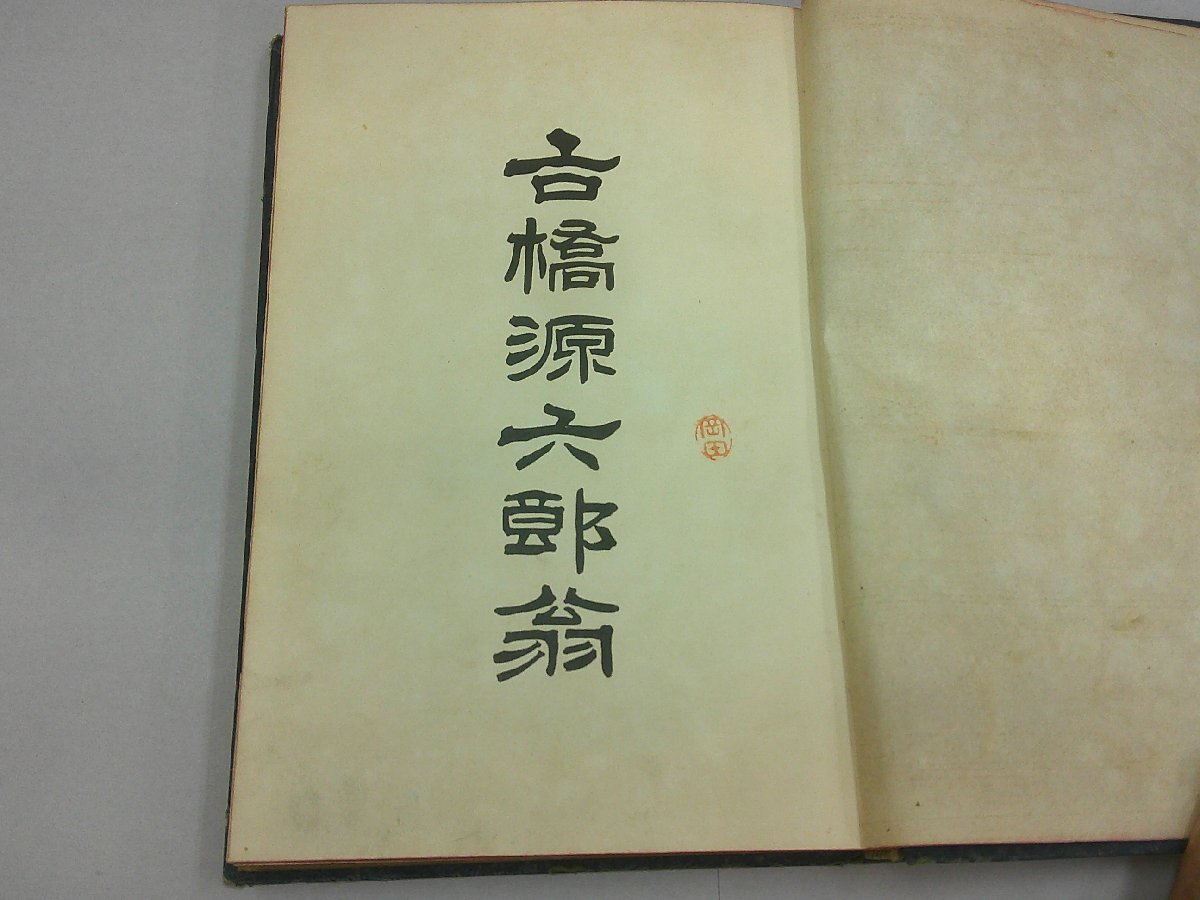 古橋源六郎翁
岡田